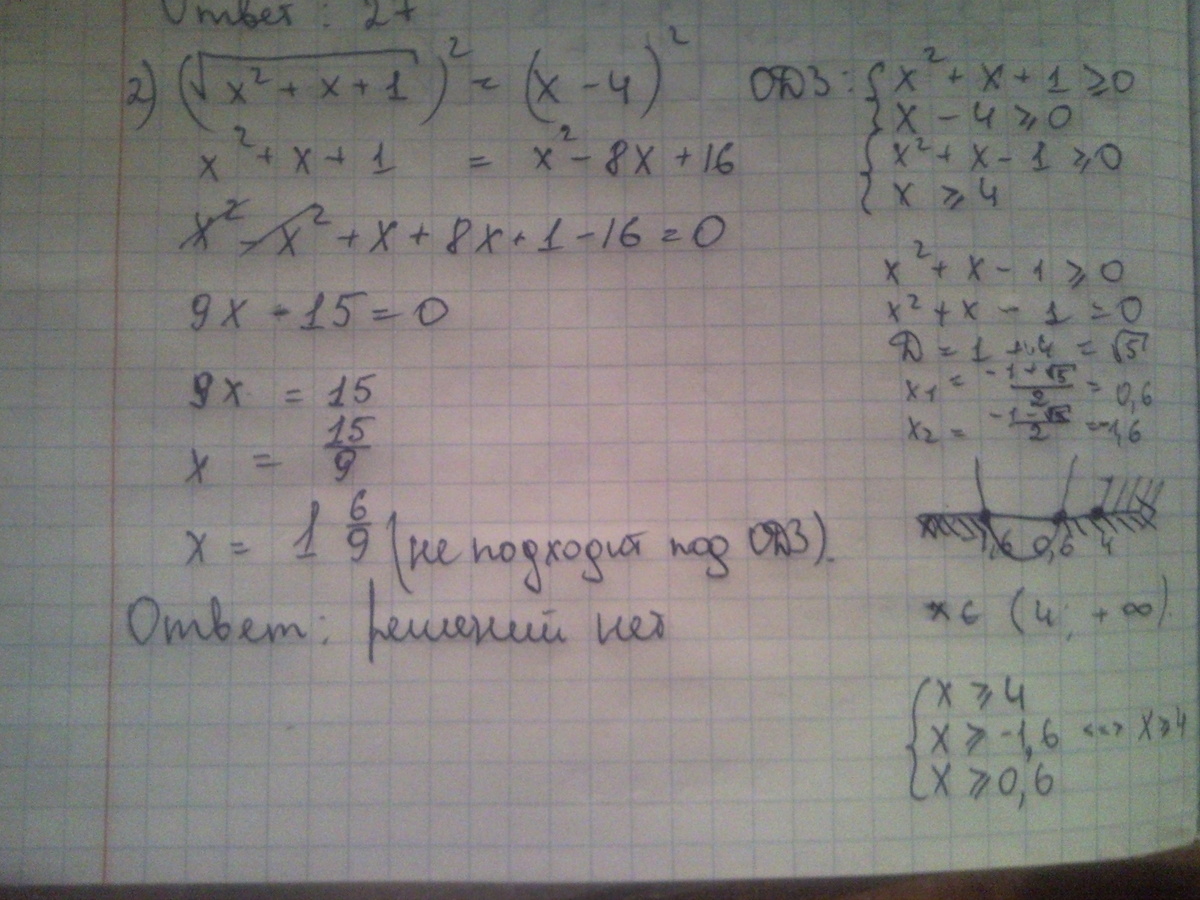 Ответ: 27
2) (√(x² + x + 1))² = (x - 4)²
x² + x + 1 = x² - 8x + 16
x² - x² + x + 8x + 1 - 16 = 0
9x - 15 = 0
9x = 15
x = 15/9
x = 1 6/9 (не подходит под ОДЗ).
Ответ: решений нет
ОДЗ: { x² + x + 1 ⩾ 0
x - 4 ⩾ 0
{ x² + x - 1 ⩾ 0
x ⩾ 4
x² + x - 1 ⩾ 0
x² + x - 1 = 0
D = 1 + 4 = √5
x1 = (-1+√5)/2 = 0,6
x2 = (-1-√5)/2 = -1,6
-1,6 0,6 4
x ∈ (4; +∞).
{ x ⩾ 4
x ⩾ -1,6 <=> x ⩾ 4
x ⩾ 0,6